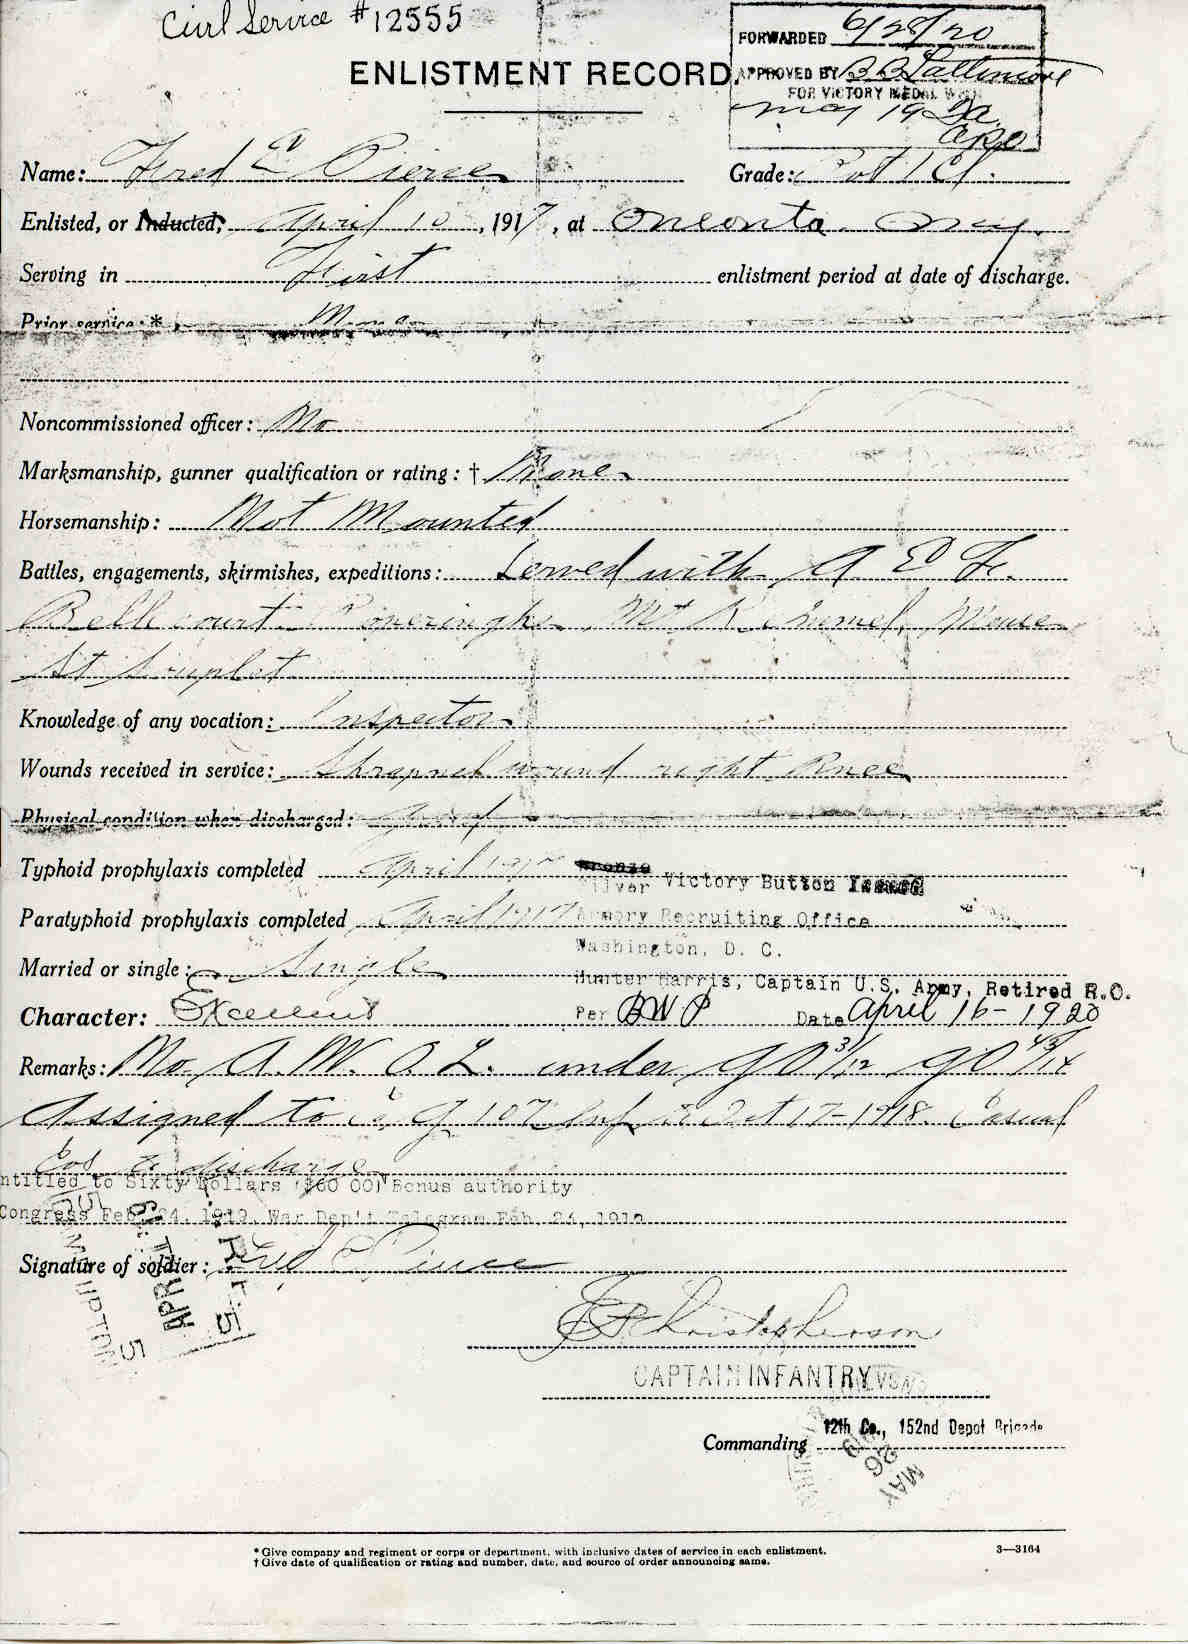 Civil Service #12555
FORWARDED 6/28/20
ENLISTMENT RECORD. APPROVED BY
FOR VICTORY MEDAL
May 19
Name: Fred E Pierce Grade: Pvt 1 Cl.
Enlisted, or Inducted, April 10, 1917, at Oneonta N.Y.
Serving in First enlistment period at date of discharge.
Prior service:* None
Noncommissioned officer: No
Marksmanship, gunner qualification or rating: † None
Horsemanship: Not Mounted
Battles, engagements, skirmishes, expeditions: Served with A E F.
Bellicourt Poperinghe, Mt Kemmel, Meuse
St Souplet
Knowledge of any vocation: Inspector
Wounds received in service: Shrapnel wound right Knee
Physical condition when discharged: Good
Typhoid prophylaxis completed April 1917 Bronze
Silver Victory Button Issued
Paratyphoid prophylaxis completed April 1917 Armory Recruiting Office
Washington, D. C.
Married or single: Single Hunter Harris, Captain U.S. Army, Retired R.O.
Character: Excellent Per BWP Date April 16-1920
Remarks: No A.W.O.L. under GO 31/12 GO 45/14
Assigned to Co G 107 Inf to Oct 17-1918. Casual
to discharge
ntitled to Sixty Dollars ($60 00) Bonus authority
Congress Feb. 24, 1919, War Dep't Telegram Feb. 24, 1919
Signature of soldier: Fred E Pierce
Christopherson
CAPTAIN INFANTRY
12th Co., 152nd Depot Brigade
Commanding
MAY 26
* Give company and regiment or corps or department, with inclusive dates of service in each enlistment.
† Give date of qualification or rating and number, date, and source of order announcing same.
3—3164